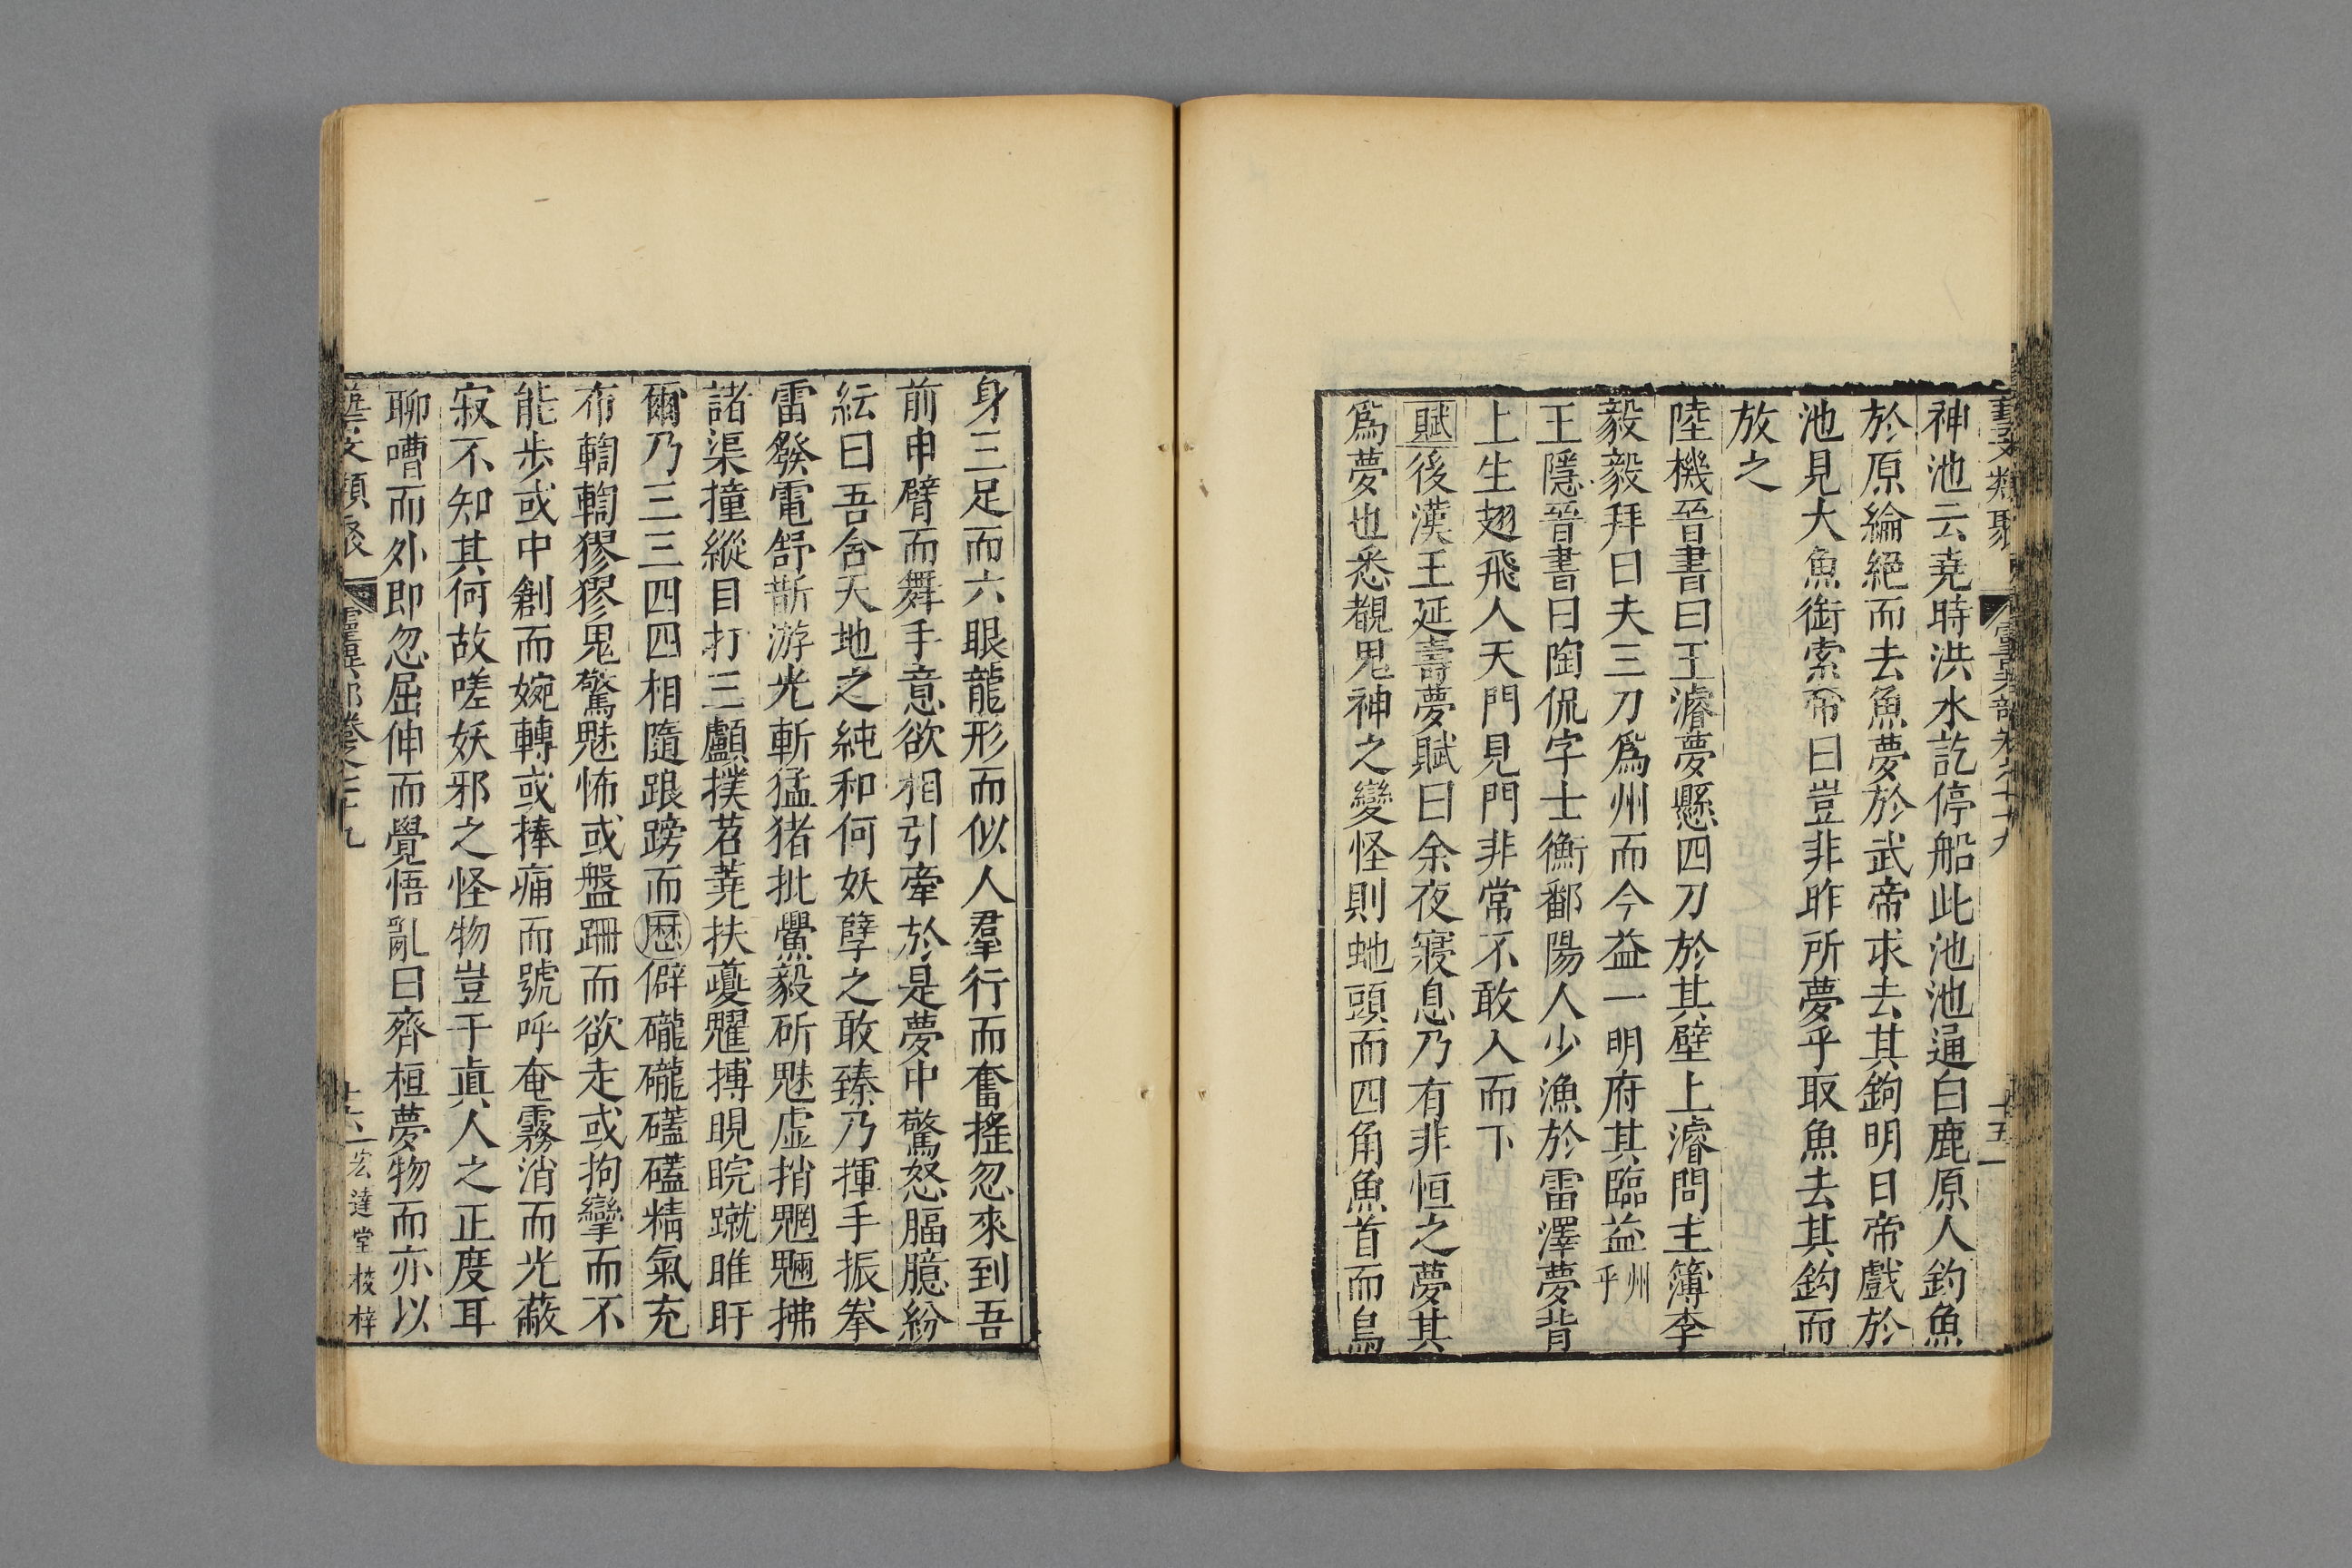 藝文類聚 靈異部卷之七十九 十五
神池云堯時洪水訖停船此池池通白鹿原人釣魚
於原綸絕而去魚夢於武帝求去其鉤明日帝戲於
池見大魚銜索帝曰豈非昨所夢乎取魚去其鈎而
放之
陸機晉書曰王濬夢懸四刀於其壁上濬問主簿李
毅毅拜曰夫三刀爲州而今益一明府其臨益州乎
王隱晉書曰陶侃字士衡鄱陽人少漁於雷澤夢背
上生翅飛人天門見門非常不敢入而下
賦後漢王延壽夢賦曰余夜寢息乃有非恒之夢其
爲夢也悉覩鬼神之變怪則虵頭而四角魚首而鳥
身三足而六眼龍形而似人羣行而奮搖忽來到吾
前申臂而舞手意欲相引牽於是夢中驚怒腷臆紛
紜曰吾含天地之純和何妖孽之敢臻乃揮手振拳
雷發電舒斮游光斬猛猪批鷽毅斫魅虛捎魍魎拂
諸渠撞縱目打三顱撲苕蕘扶夔魖搏睍睆蹴睢盱
爾乃三三四四相隨踉蹡而歷僻礲礲礚礚精氣充
布輷輷㺒㺒鬼驚魅怖或盤跚而欲走或拘攣而不
能步或中創而婉轉或捧痛而號呼奄霧消而光蔽
寂不知其何故嗟妖邪之怪物豈干真人之正度耳
聊嘈而外卽忽屈伸而覺悟亂曰齊桓夢物而亦以
藝文類聚 靈異部卷之七十九 十六 宏達堂校梓